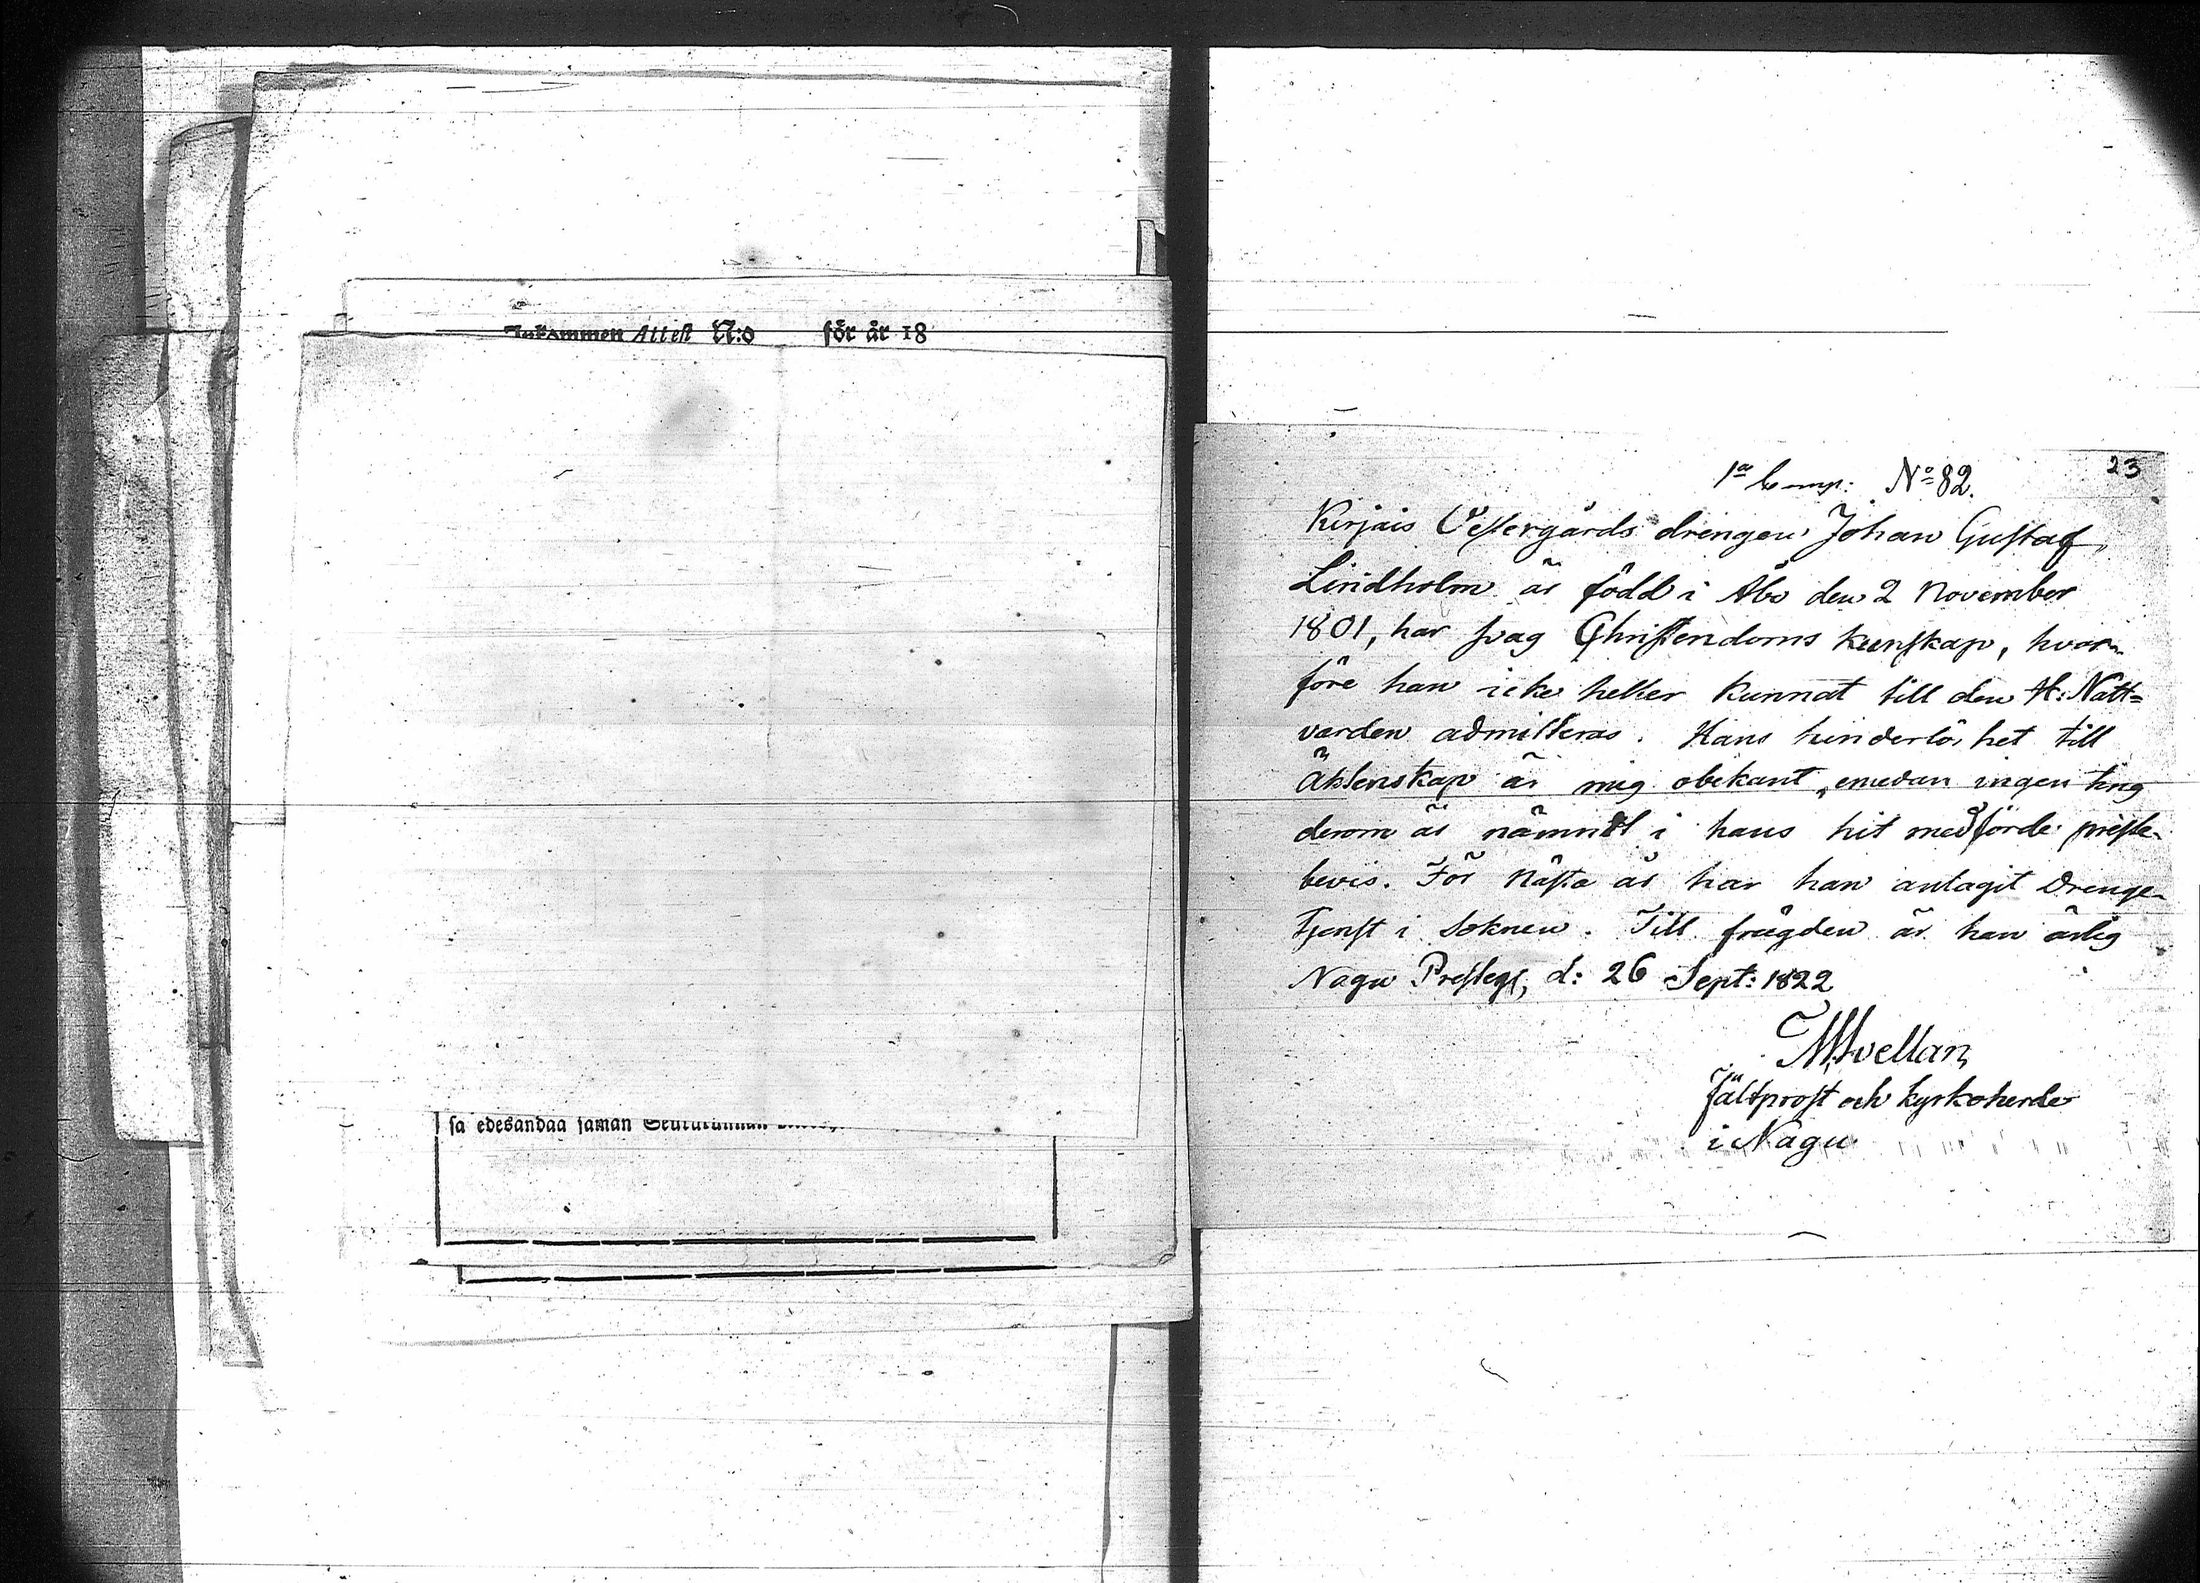 Inkommen Attest N:o för år 18
sa edesandaa saman
23
1a Comp: No 82.
Kirjais Vestergårds drengen Johan Gustaf
Lindholm är född i Åbo den 2 November
1801, har svag Christendoms kunskap, hvar-
före han icke heller kunnat till den H: Natt=
varden admitteras. Hans hinderlöshet till
Äktenskap är mig obekant, emedan ingen ting
derom är nämndt i hans hit medförde preste-
bevis. För nästa år har han antagit Drenge-
tjenst i Soknen. Till frägden är han ärlig
Nagu Prestegd, d: 26 Sept: 1822
Fältprost och kyrkoherde
i Nagu